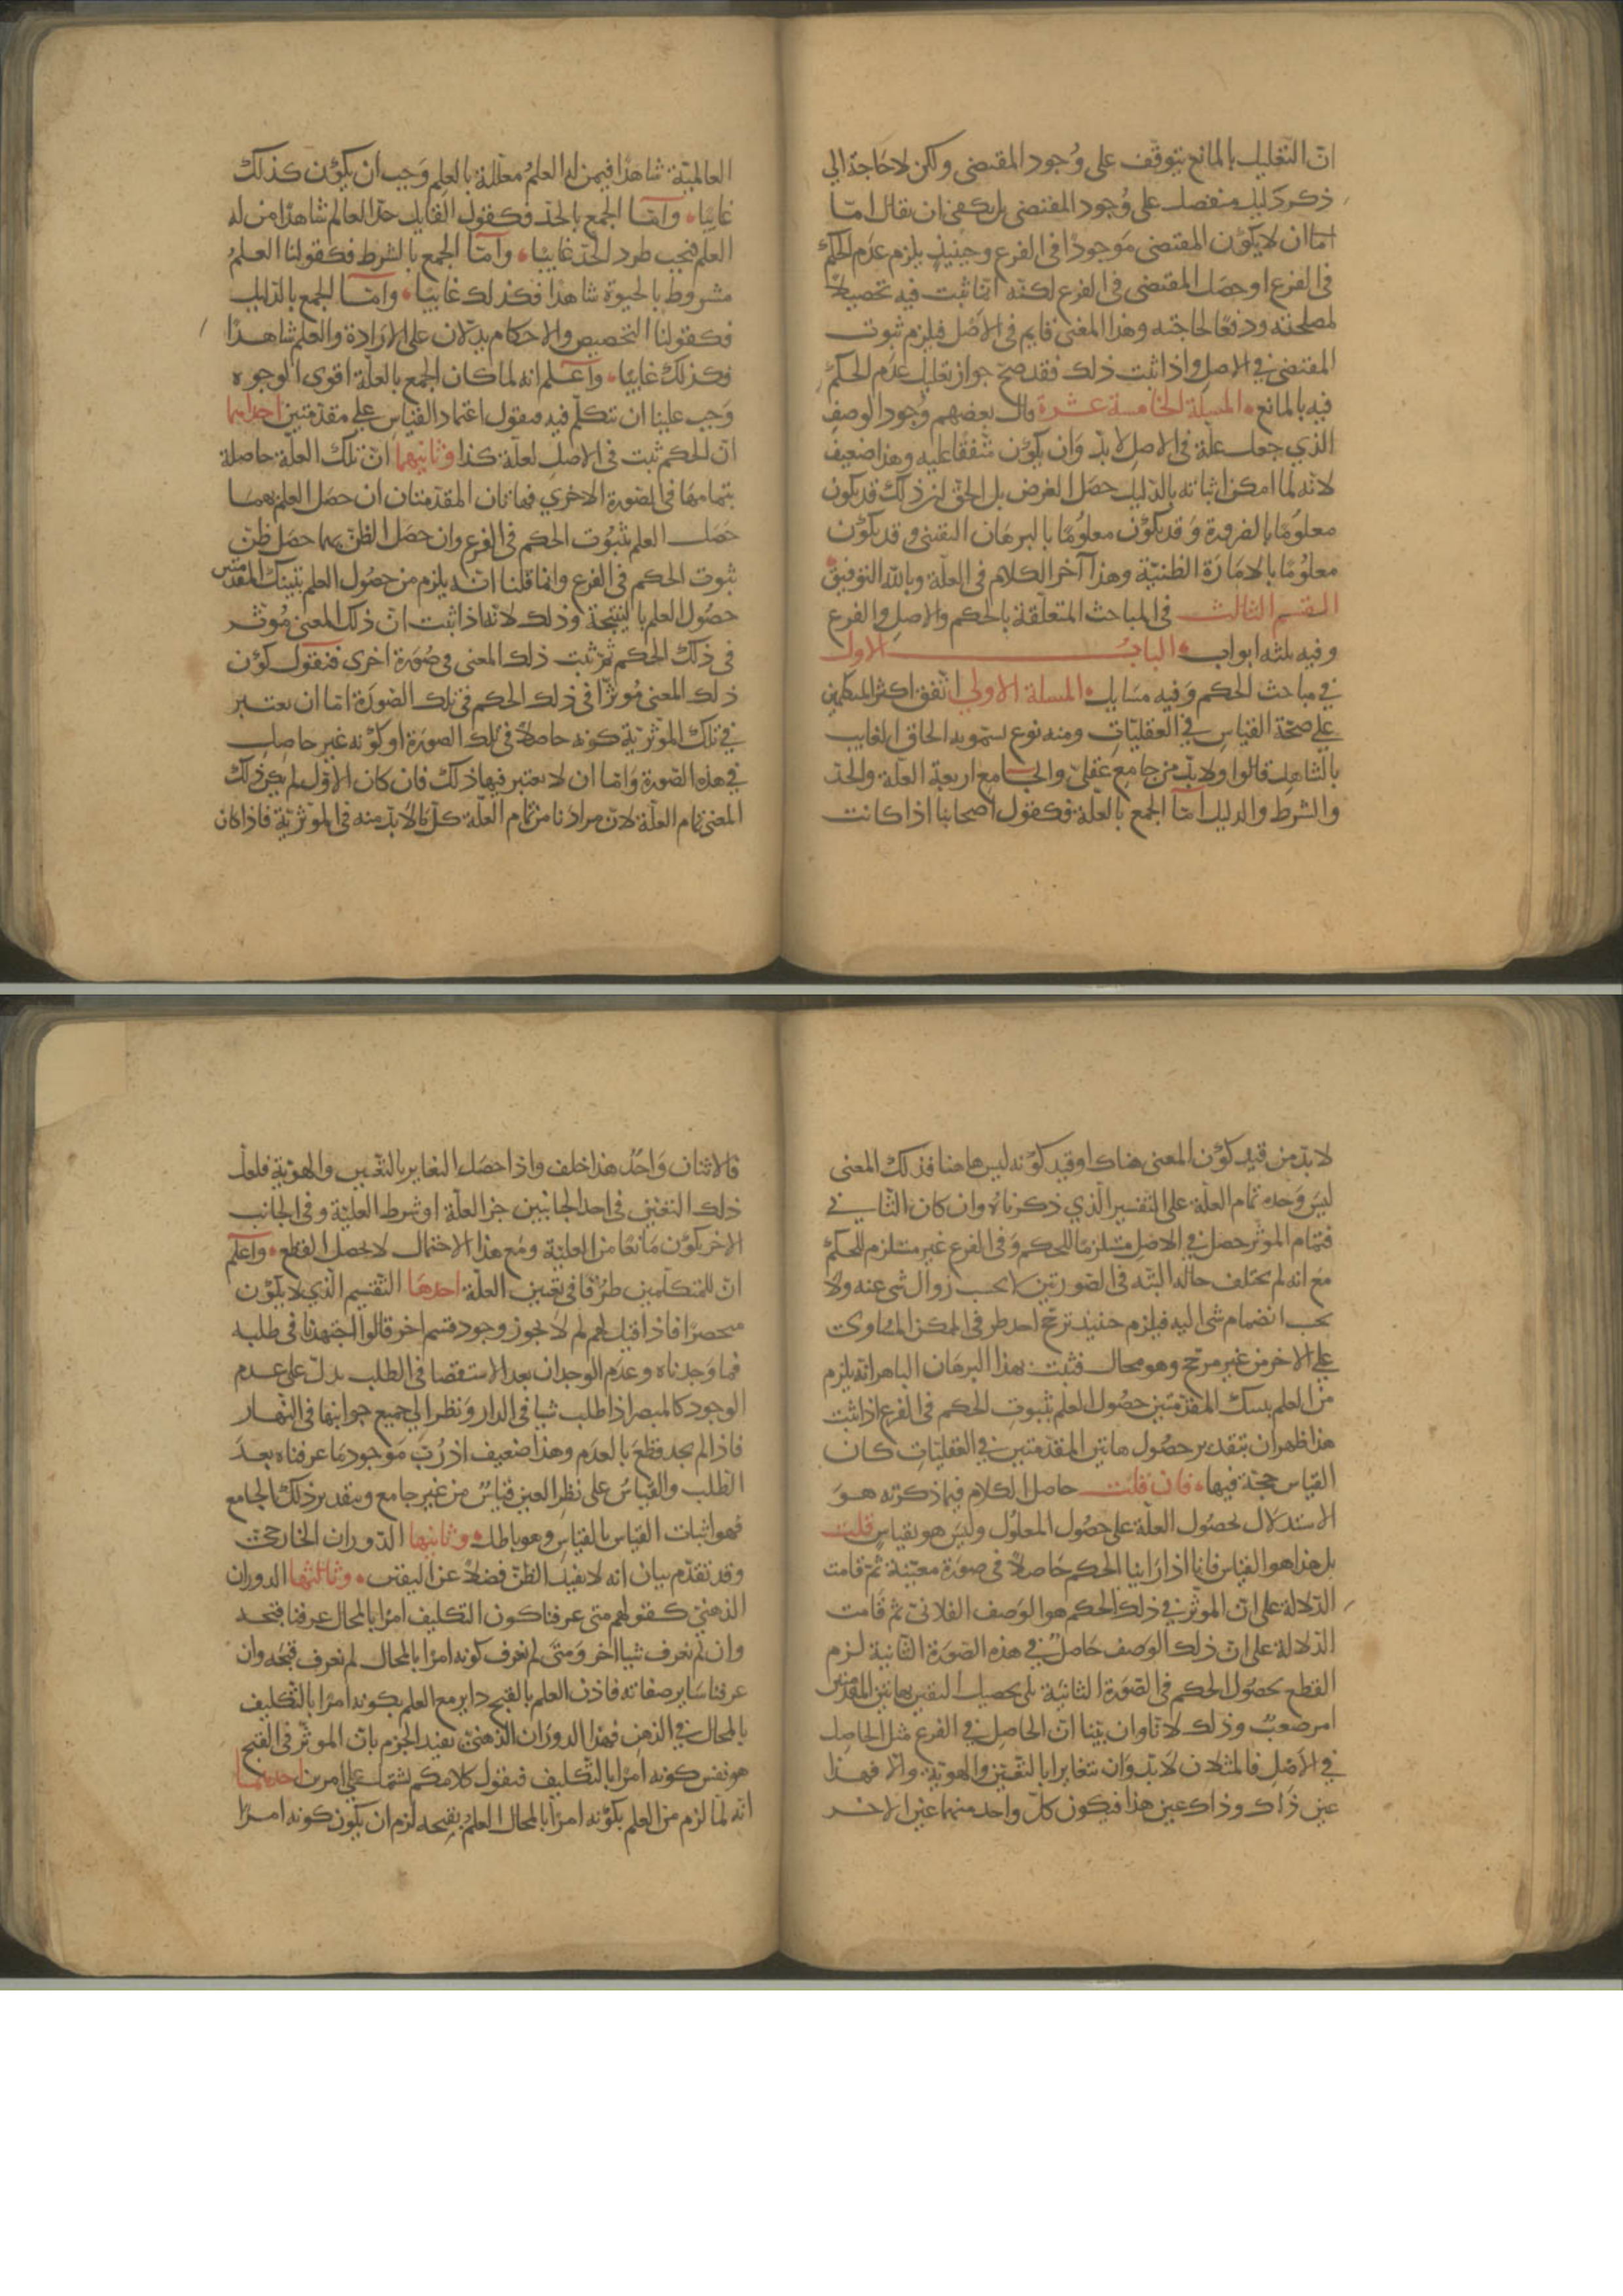 ان التعليل بالمانع يتوقف على وجود المقتضى ولكن لا حاجة الى
ذكر دليل منفصل على وجود المقتضى بل يكفى ان يقال امّا
امّا ان لا يكون المقتضى موجودًا فى الفرع وحينيذٍ يلزم عدم الحكم
فى الفرع او حصل المقتضى فى الفرع لكنه انما ثبت فيه تحصيلاً
لمصلحته ودفعًا لحاجته وهذا المعنى قايم فى الاصل فيلزم ثبوت
المقتضى فى الاصل واذا ثبت ذلك فقد صح جواز تعليل عدم الحكم
فيه بالمانع المسلة الخامسة عشرة قال بعضهم وجود الوصف
الذي جعل علة فى الاصل لا بد وان يكون متفقًا عليه وهذا ضعيف
لانه لما امكن اثباته بالدليل حصل الغرض بل الحق ان ذلك قد يكون
معلومًا بالضرورة وقد يكون معلومًا بالبرهان اليقينى وقد يكون
معلومًا بالامارة الظنية وهذا آخر الكلام فى العلة وبالله التوفيق
القسم الثالث فى المباحث المتعلقة بالحكم والاصل والفرع
وفيه ثلثه ابواب الباب الاول
في مباحث الحكم وفيه مسايل المسلة الاولى اتفق اكثر المتكلمين
على صحة القياس في العقليات ومنه نوع يسمونه الحاق الغايب
بالشاهد قالوا ولا بد من جامع عقلى والجامع اربعة العلة والحد
والشرط والدليل امّا الجمع بالعلة فكقول اصحابنا اذا كانت
العالمية شاهدًا فيمن له العلم معللة بالعلم وجب ان يكون كذلك
غايبًا وامّا الجمع بالحد فكقول القايل حد العالم شاهدًا من له
العلم فيجب طرد الحد غايبًا وامّا الجمع بالشرط فكقولنا العلم
مشروط بالحيوة شاهدًا فكذلك غايبًا وامّا الجمع بالدليل
فكقولنا التخصيص والاحكام يدلان على الارادة والعلم شاهدًا
فكذلك غايبًا واعلم انه لما كان الجمع بالعلة اقوى الوجوه
وجب علينا ان نتكلم فيه فنقول اعتماد القياس على مقدمتين احداهما
ان الحكم ثبت فى الاصل لعلة كذا وثانيهما ان تلك العلة حاصلة
بتمامها فى الصورة الاخرى فهاتان المقدمتان ان حصل العلم بهما
حصل العلم بثبوت الحكم فى الفرع وان حصل الظن بهما حصل ظن
ثبوت الحكم فى الفرع وانما قلنا انه يلزم من حصول العلم بتينك المقدمتين
حصول العلم بالنتيجة وذلك لانه اذا ثبت ان ذلك المعنى موثر
فى ذلك الحكم ثم ثبت ذلك المعنى فى صورة اخرى فنقول كون
ذلك المعنى موثرًا فى ذلك الحكم فى تلك الصورة امّا ان يعتبر
في تلك الموثرية كونه حاصلاً فى تلك الصورة او كونه غير حاصل
في هذه الصورة وامّا ان لا يعتبر فيها ذلك فان كان الاول لم يكن ذلك
المعنى تمام العلة لان مرادنا من تمام العلة كل ما لا بد منه فى الموثرية فاذا كان
لا بد من قيد كون المعنى هناك او قيد كونه ليس هاهنا فذلك المعنى
ليس وحده تمام العلة على التفسير الذي ذكرناه وان كان الثاني
فتمام الموثر حصل في الاصل مستلزمًا للحكم وفى الفرع غير مستلزم للحكم
مع انه لم يختلف حاله البتّه فى الصورتين لا بحسب زوال شى عنه ولا
بحسب انضمام شى اليه فيلزم حينيذ ترجح احد طرفى الممكن المساوى
على الاخر من غير مرجح وهو محال فثبت بهذا البرهان الباهر انه يلزم
من العلم بتينك المقدمتين حصول العلم بثبوت الحكم فى الفرع اذا ثبت
هذا ظهر ان بتقدير حصول هاتين المقدمتين في العقليات كان
القياس حجة فيها فان قلت حاصل الكلام فيما ذكرته هو
الاستدلال بحصول العلة على حصول المعلول وليس هو بقياس قلت
بل هذا هو القياس فانا اذا راينا الحكم حاصلاً فى صورة معينة ثم قامت
الدلالة على ان الموثر في ذلك الحكم هو الوصف الفلانى ثم قامت
الدلالة على ان ذلك الوصف حاصل في هذه الصورة الثانية لزم
القطع بحصول الحكم فى الصورة الثانية بلى تحصيل اليقين بهاتين المقدمتين
امر صعب وذلك لانا وان بينا ان الحاصل في الفرع مثل الحاصل
في الاصل فالمثلان لا بد وان يتغايرا بالتعين والهوية والا فهذا
عين ذاك وذاك عين هذا فيكون كل واحد منهما عين الاخر
فالاثنان واحد هذا خلف واذا حصل التغاير بالتعين والهوية فلعل
ذلك التعين فى احد الجانبين جزء العلة او شرط العلية وفى الجانب
الاخر يكون مانعًا من العلية ومع هذا الاحتمال لا يحصل القطع واعلم
ان للمتكلمين طرقًا فى تعيين العلة احدها التقسيم الذي لا يكون
منحصرًا فاذا قيل لهم لم لا يجوز وجود قسم اخر قالوا اجتهدنا فى طلبه
فما وجدناه وعدم الوجدان بعد الاستقصا فى الطلب يدل على عدم
الوجود كالمبصر اذا طلب شيا فى الدار ونظر الى جميع جوانبها فى النهار
فاذا لم يجد قطع بالعدم وهذا ضعيف اذ رُب موجود ما عرفناه بعد
الطلب والقياس على نظر العين قياس من غير جامع وبتقدير ذلك الجامع
فهو اثبات القياس بالقياس وهو باطل وثانيها الدوران الخارجى
وقد تقدم بيان انه لا يفيد الظن فضلاً عن اليقين وثالثها الدوران
الذهنى كقولهم متى عرفنا كون التكليف امرًا بالمحال عرفنا قبحه
وان لم نعرف شيا اخر ومتى لم نعرف كونه امرًا بالمحال لم نعرف قبحه وان
عرفنا ساير صفاته فاذن العلم بالقبح داير مع العلم بكونه امرًا بالتكليف
بالمحال في الذهن فهذا الدوران الذهنى يفيد الجزم بان الموثر فى القبح
هو نفس كونه امرًا بالتكليف فنقول كلامكم يشتمل على امرين احدهما
انه لما لزم من العلم بكونه امرًا بالمحال العلم بقبحه لزم ان يكون كونه امرًا